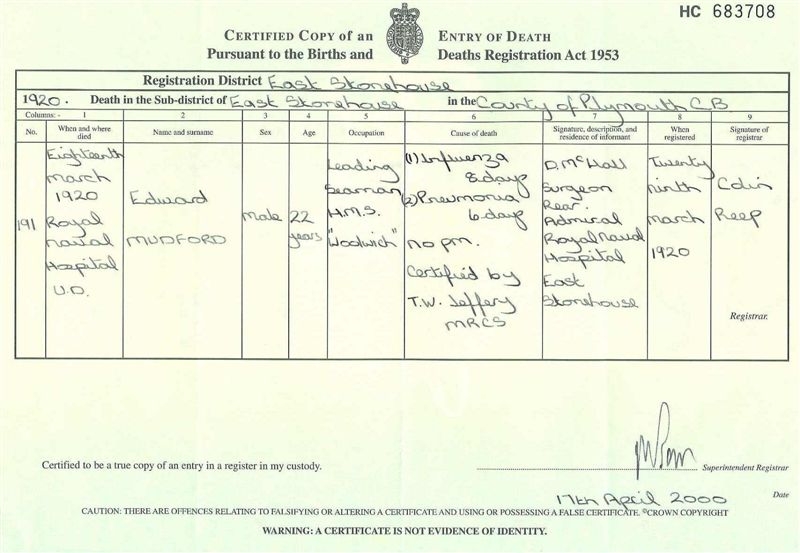 HC 683708
CERTIFIED COPY of an ENTRY OF DEATH
Pursuant to the Births and Deaths Registration Act 1953
Registration District East Stonehouse
1920. Death in the Sub-district of East Stonehouse in the County of Plymouth C B
Columns:- 1 2 3 4 5 6 7 8 9
No. When and where died Name and surname Sex Age Occupation Cause of death Signature, description, and residence of informant When registered Signature of registrar
191
Eighteenth
March
1920
Royal
Naval
Hospital
U.D.
Edward
MUDFORD
Male
22
years
Leading
Seaman
H.M.S.
"Woolwich"
(1) Influenza
8 days
(2) Pneumonia
6 days
no pm.
Certified by
T.W. Jeffery
MRCS
D. McHall
Surgeon
Rear.
Admiral
Royal Naval
Hospital
East
Stonehouse
Twenty
ninth
March
1920
Colin
Reep
Registrar.
Certified to be a true copy of an entry in a register in my custody.
Superintendent Registrar
17th April 2000
Date
CAUTION: THERE ARE OFFENCES RELATING TO FALSIFYING OR ALTERING A CERTIFICATE AND USING OR POSSESSING A FALSE CERTIFICATE. ©CROWN COPYRIGHT
WARNING: A CERTIFICATE IS NOT EVIDENCE OF IDENTITY.